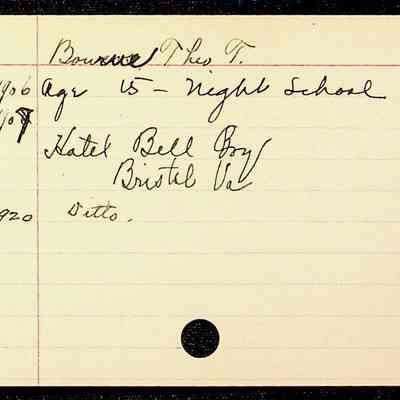 Bourne Theo T.
1906 Age 15 - Night School
1907
Hotel Bell Boy
Bristol Va
1920 Ditto.